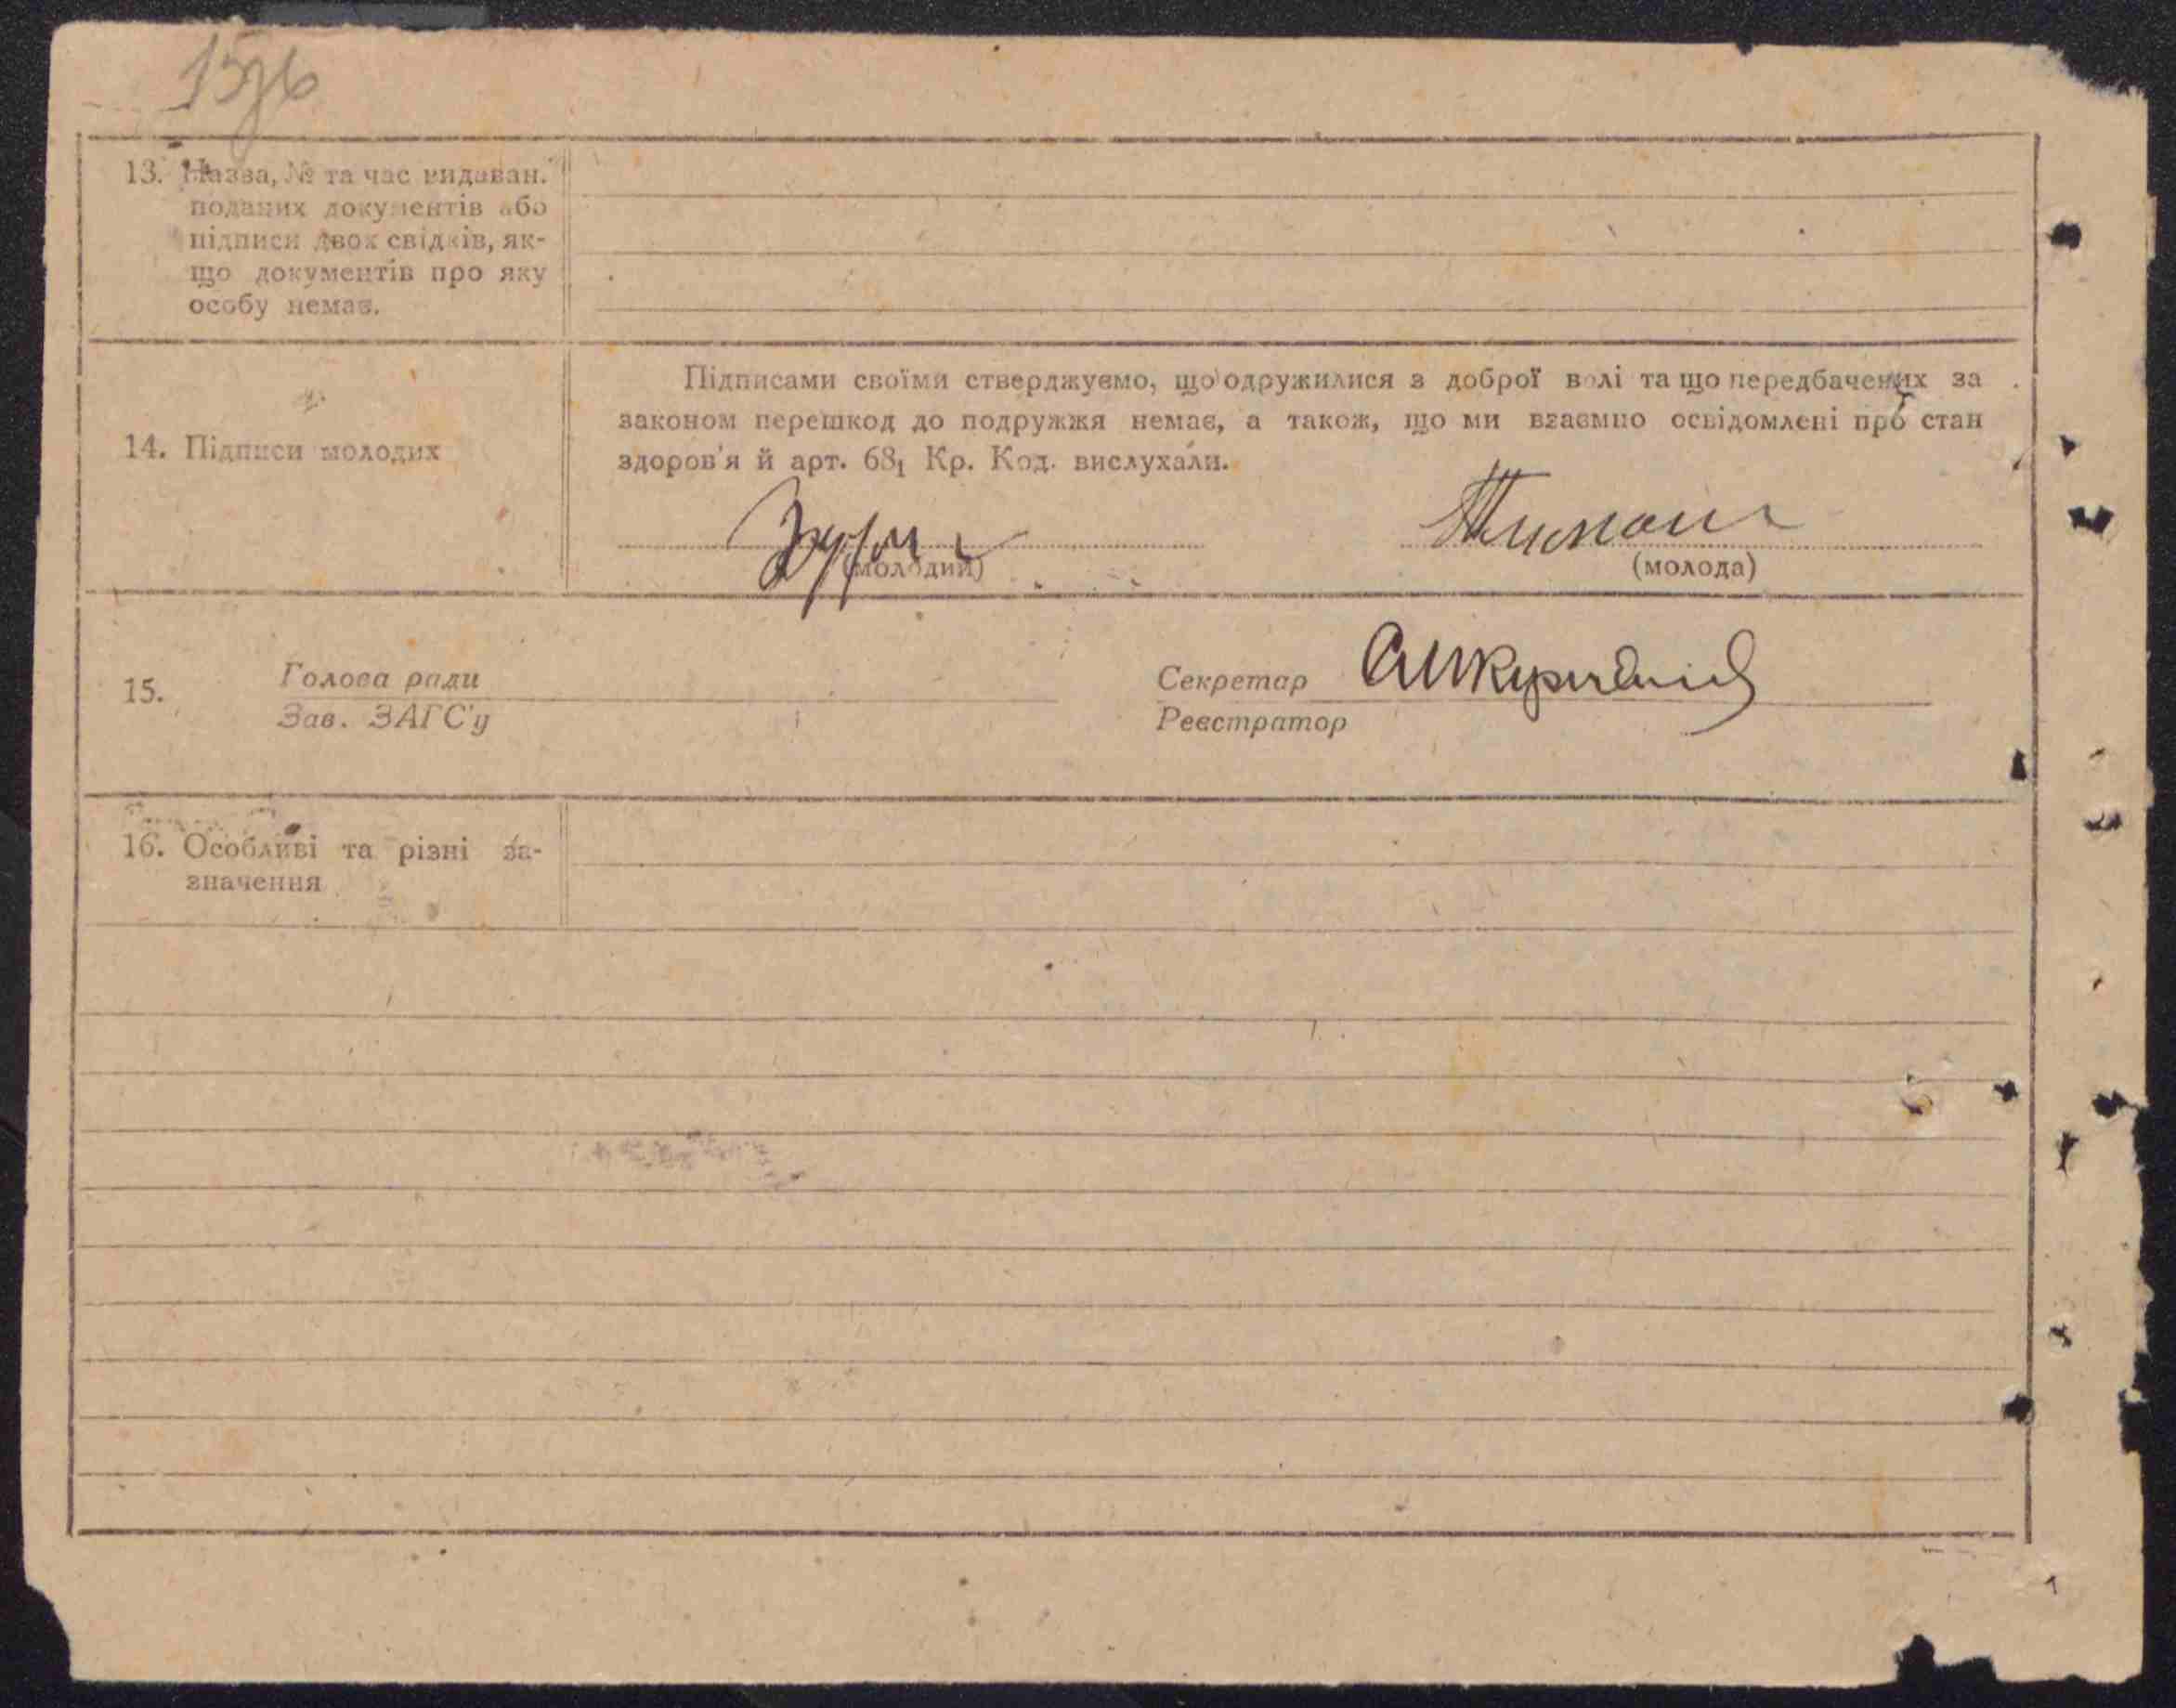 13. Назва, № та час видаван.
поданих документів або
підписи двох свідків, як-
що документів про яку
особу немає.
Підписами своїми стверджуємо, що одружилися з доброї волі та що передбачених за
законом перешкод до подружжя немає, а також, що ми взаємно освідомлені про стан
здоров'я й арт. 68₁ Кр. Код. вислухали.
14. Підписи молодих
(молодий)
(молода)
15.
Голова ради
Секретар
Зав. ЗАГС'у
Реєстратор
16. Особливі та різні за-
значення